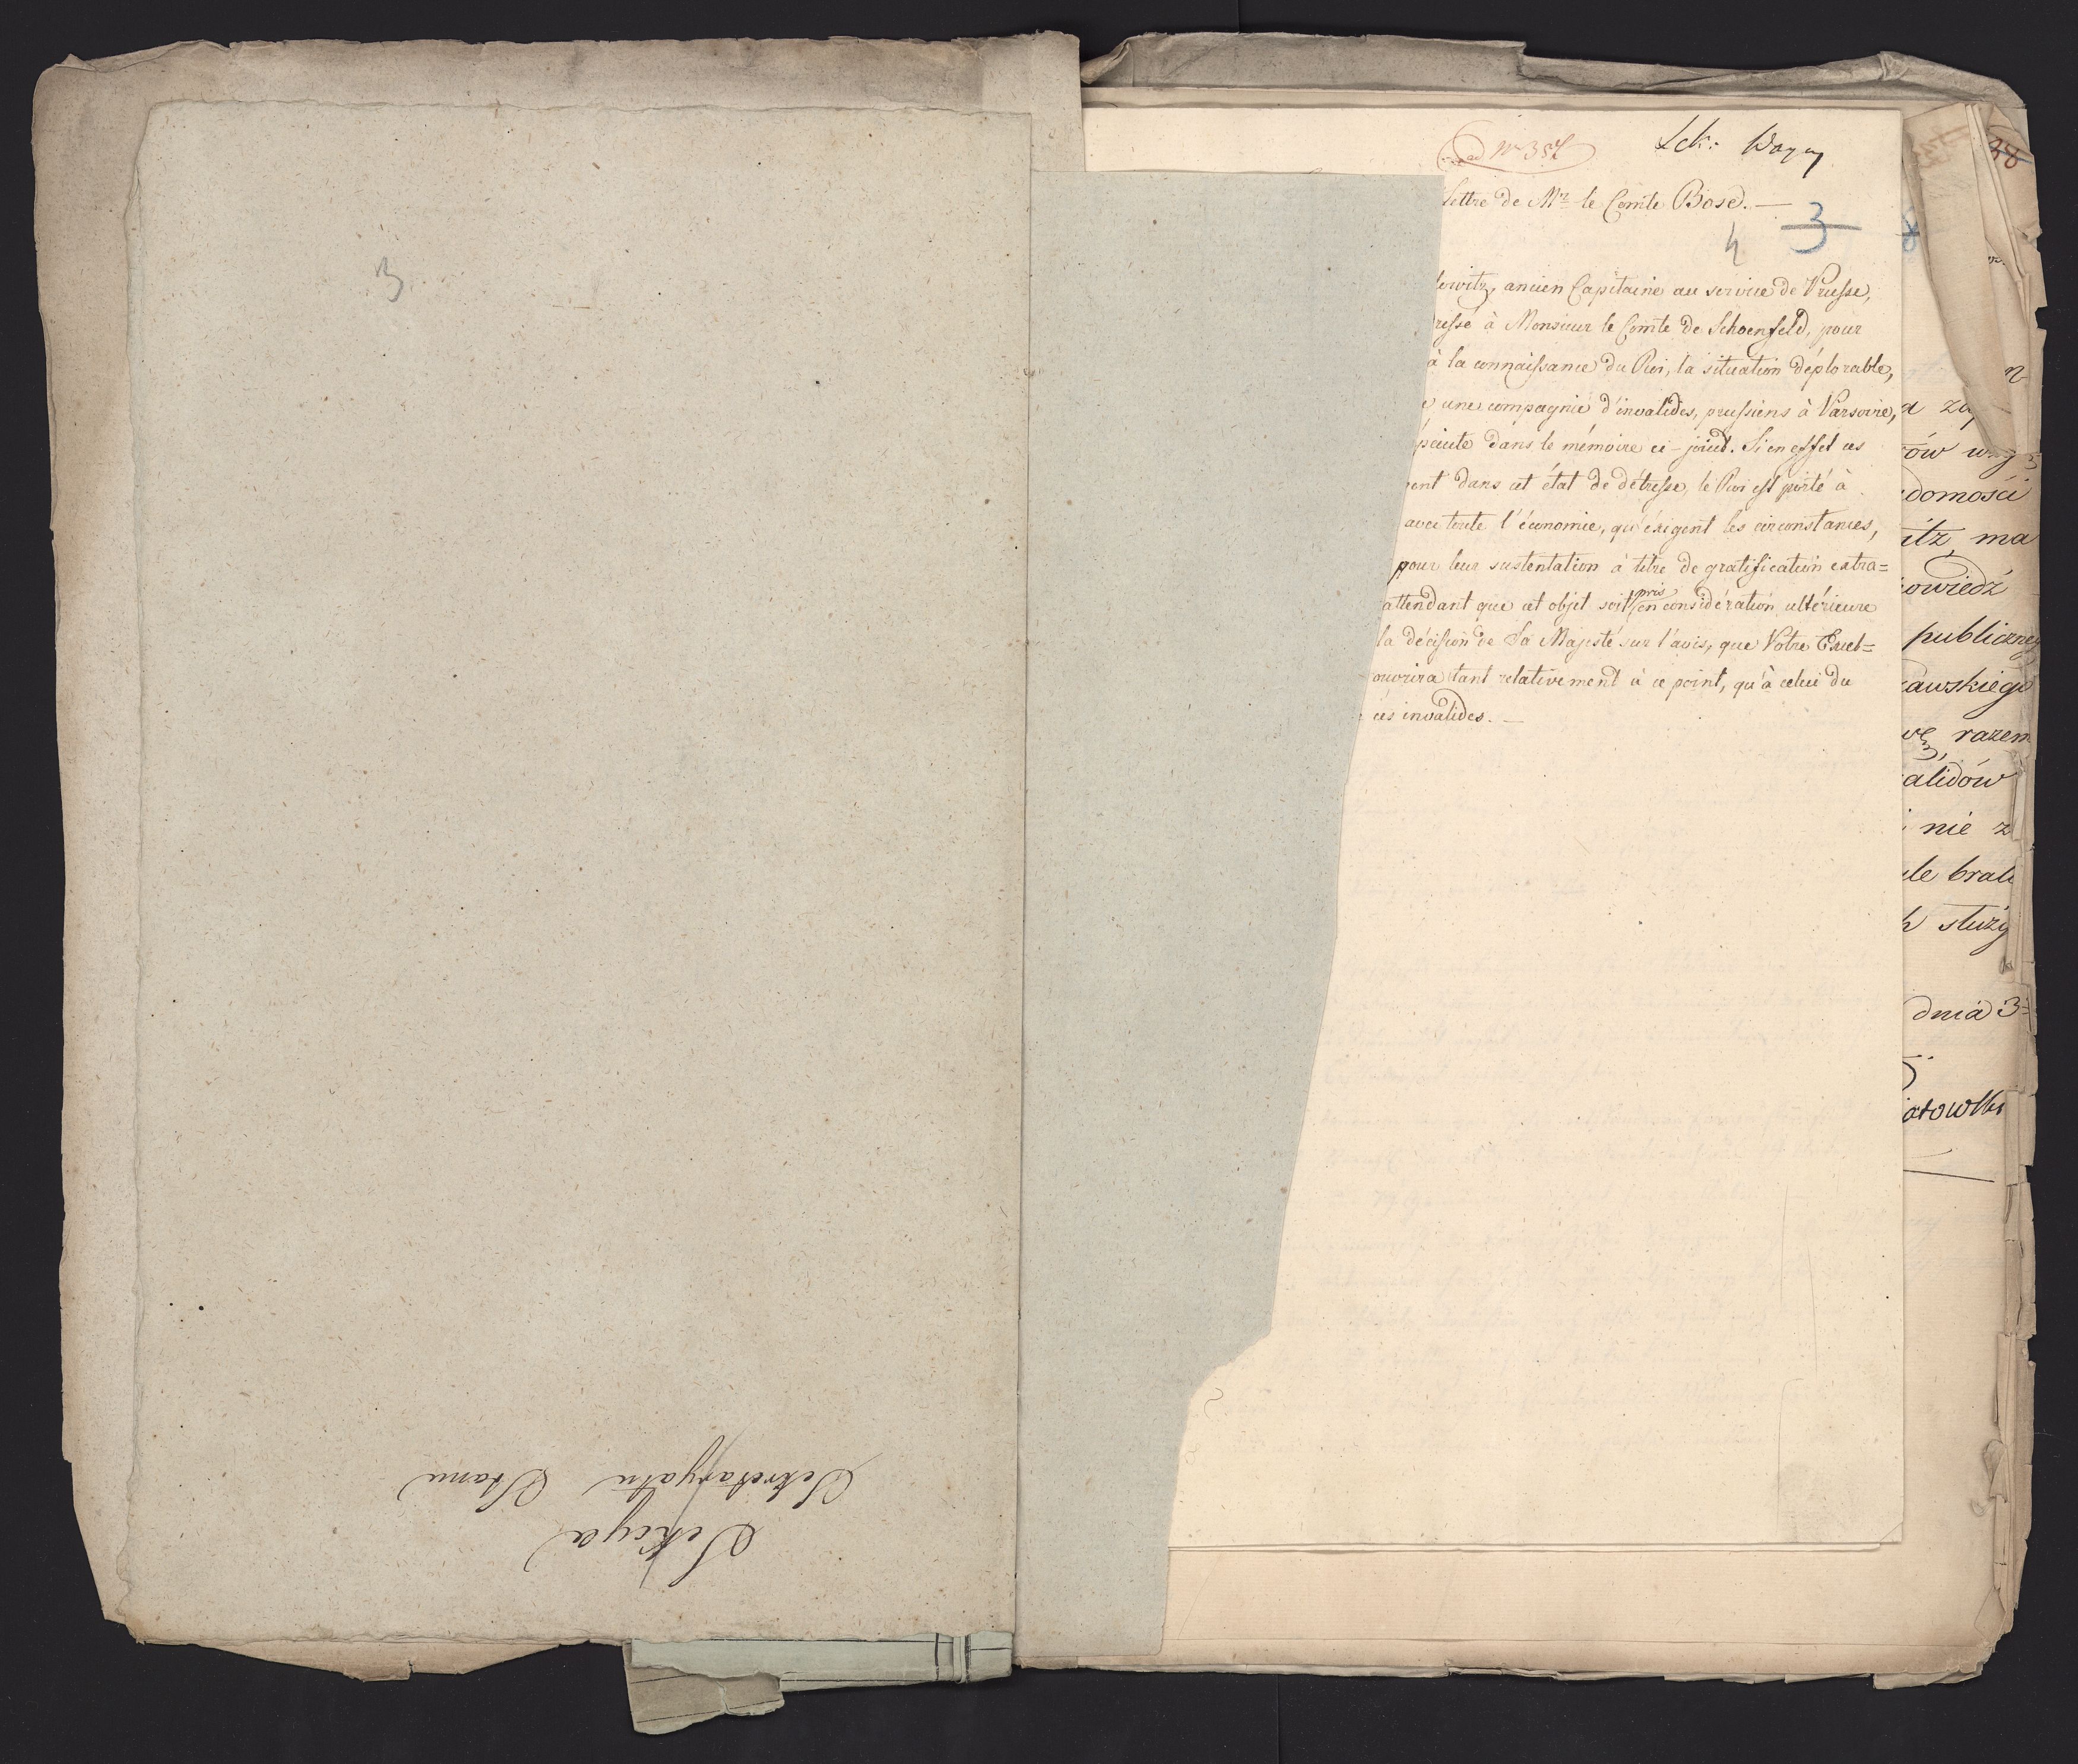 3
Sekcya
Sekretaryatu Stanu
ad Nr 357
Sek: Woyny
Lettre de Mr. le Comte Bose. —
3
4
lowitz, ancien Capitaine au service de Prusse,
ressé à Monsieur le Comte de Schoenfeld, pour
à la connaissance du Roi, la situation déplorable,
e une compagnie d'invalides, prussiens à Varsovie,
peinte dans le mémoire ci-joint. Si en effet ces
vent dans cet état de détresse, le Roi est porté à
avec toute l'économie, qu'éxigent les circonstances,
pour leur sustentation à titre de gratification extra=
attendant que cet objet soit pris en considération ultérieure
la décision de Sa Majesté sur l'avis, que Votre Excel=
ouvrira tant relativement à ce point, qu'à celui du
ces invalides. —
38
8
n
a
ów
domości
itz, ma
owiedź
publiczney
awskiego
razem
alidów
nie z
le brali
h służy
dnia 3
iatowski